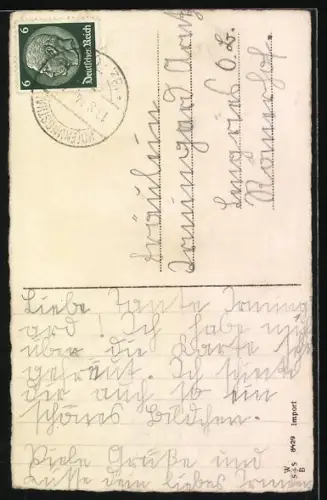 6 Deutsches Reich 6
Fräulein
Irmingard
Lenggries O.B.
Römerhof.
Liebe Tante Irming
ard! Ich habe mich
über die Karte sehr
gefreut. Ich schicke
dir auch so ein
schönes Bildchen.
Viele Grüße und
Küsse dem liebes Irming
W
S+S
B
8429
Import